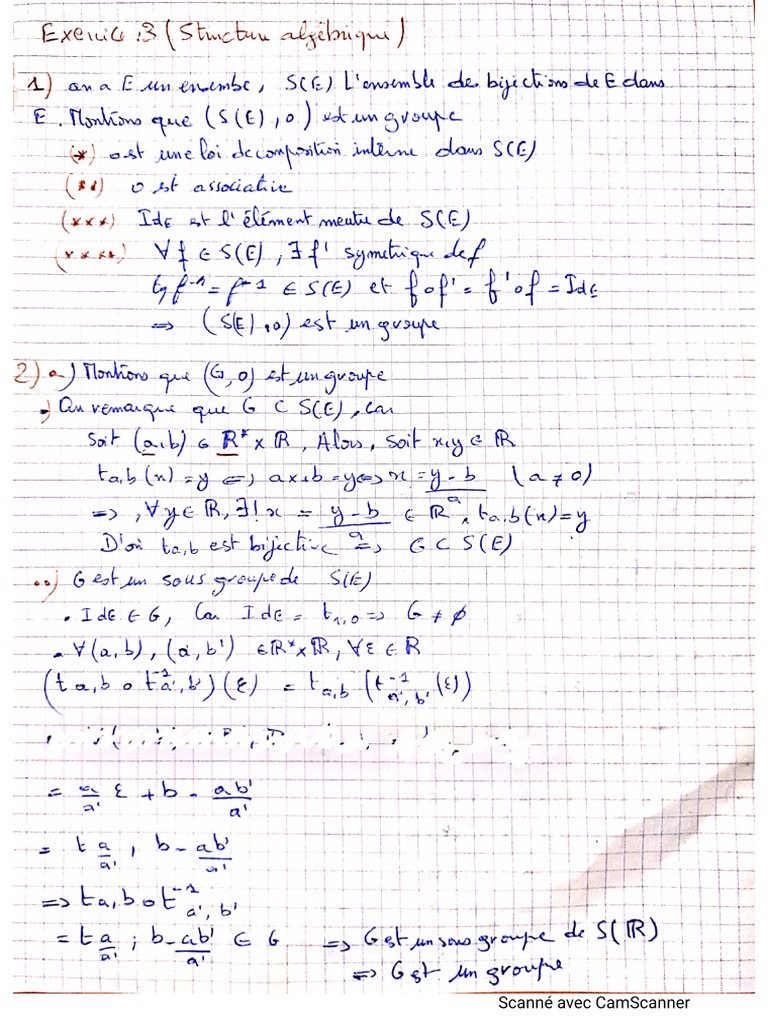 Exercice : 3 (Structure algébrique)
1) on a E un ensembe, S(E) L'ensemble de bijections de E dans
E. Montrons que (S(E), o) est un groupe
(*) o est une loi de composition interne dans S(E)
(**) o est associative
(***) IdE est l'élément neutre de S(E)
(****) ∀f ∈ S(E), ∃ f' symetrique de f
tq f⁻¹ = f⁻¹ ∈ S(E) et f o f' = f' o f = IdE
⇒ (S(E), o) est un groupe
2) a) Montrons que (G, o) est un groupe
•) On remarque que G ⊂ S(E), car
Soit (a,b) ∈ R* x R, Alors, soit x,y ∈ R
ta,b(x) = y ⟺ ax+b = y ⟺ x = (y-b)/a (a ≠ 0)
⇒, ∀y ∈ R, ∃! x = (y-b)/a ∈ R, ta,b(x) = y
D'où ta,b est bijective ⇒ G ⊂ S(E)
••) G est un sous groupe de S(E)
• IdE ∈ G, Car IdE = t1,0 ⇒ G ≠ ∅
• ∀(a,b), (a',b') ∈ R* x R, ∀ε ∈ R
(ta,b o t⁻¹a',b')(ε) = ta,b (t⁻¹a',b'(ε))
= a/a' ε + b - ab'/a'
= t a/a', b - ab'/a'
⇒ ta,b o t⁻¹a',b'
= t a/a' ; b - ab'/a' ∈ G ⇒ G est un sous groupe de S(R)
⇒ G est un groupe
Scanné avec CamScanner